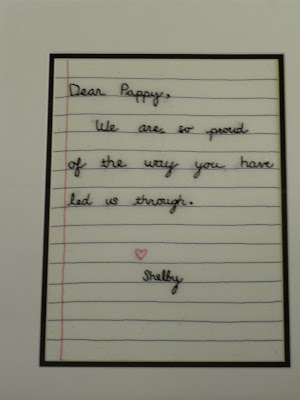 Dear Pappy,
We are so proud
of the way you have
led us through.
♡
Shelby